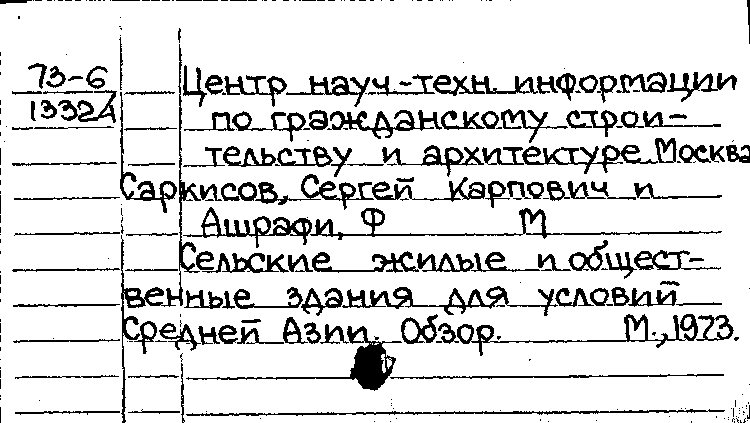 73-6 Центр науч.-техн. информации
13324 по гражданскому строи-
тельству и архитектуре Москва
Саркисов, Сергей Карпович и
Ашрафи, Ф М
Сельские жилые и общест-
венные здания для условий
Средней Азии. Обзор. М., 1973.